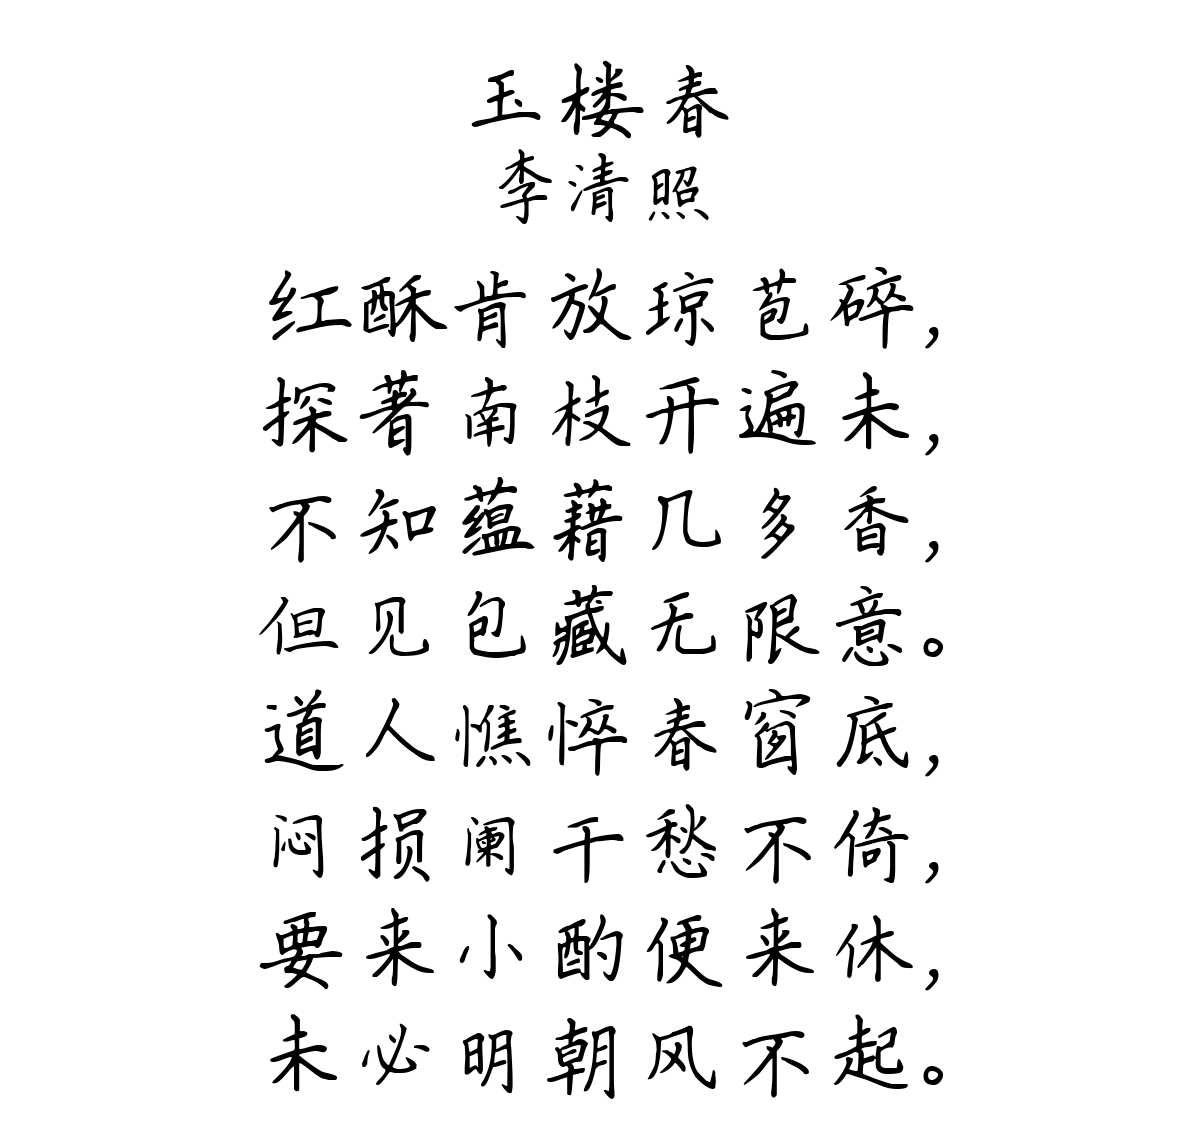 玉楼春
李清照
红酥肯放琼苞碎，
探著南枝开遍未，
不知蕴藉几多香，
但见包藏无限意。
道人憔悴春窗底，
闷损阑干愁不倚，
要来小酌便来休，
未必明朝风不起。